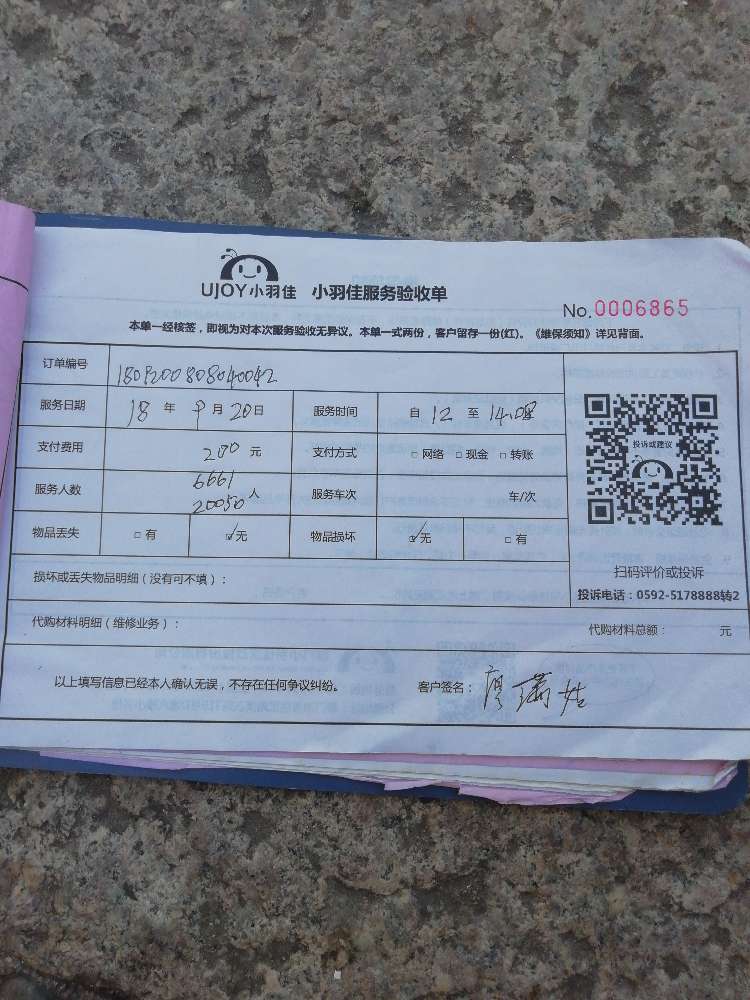 UJOY小羽佳 小羽佳服务验收单
No.0006865
本单一经核签，即视为对本次服务验收无异议。本单一式两份，客户留存一份(红)。《维保须知》详见背面。
订单编号
服务日期 18 年 9 月 20 日 服务时间 自 12 至 14:08
支付费用 200 元 支付方式 □ 网络 □ 现金 □ 转账
服务人数 6661 20050 人 服务车次 车/次
物品丢失 □ 有 □无 物品损坏 □无 □ 有
投诉或建议
扫码评价或投诉
投诉电话：0592-5178888转2
损坏或丢失物品明细（没有可不填）：
代购材料明细（维修业务）： 代购材料总额： 元
以上填写信息已经本人确认无误，不存在任何争议纠纷。 客户签名：